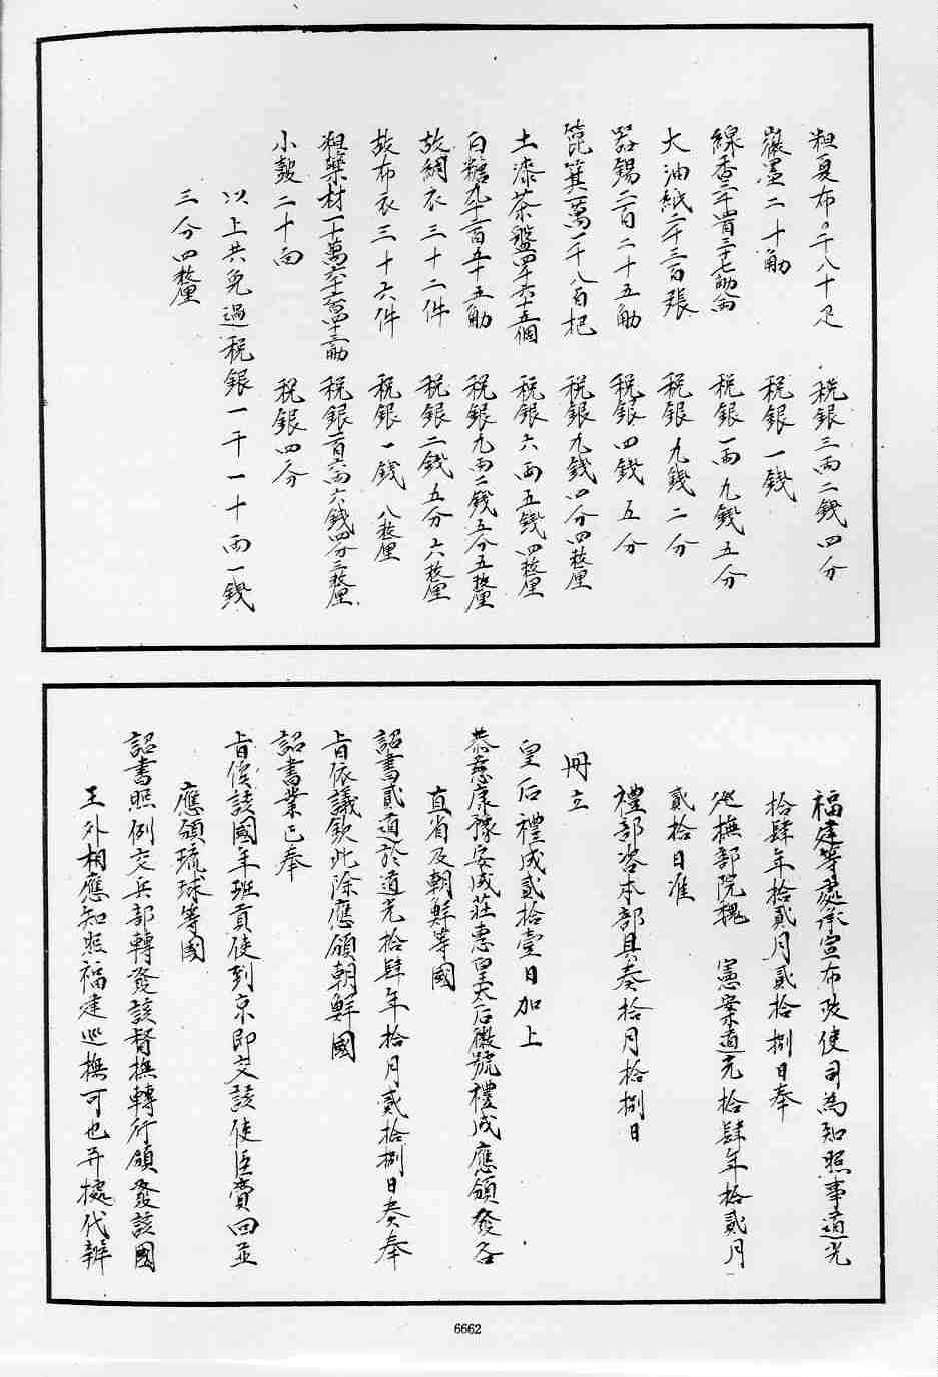 粗夏布一千八十疋　税銀三兩二錢四分
滾墨二十觔　税銀一錢
線香二千四百三十七觔　税銀一兩九錢五分
大油紙二千三百張　税銀九錢二分
器錫二百二十五觔　税銀四錢五分
箆箕一萬一千八百把　税銀九錢四分四釐
土漆茶盤四千六十五個　税銀六兩五錢四釐
白糖九千二百五十五觔　税銀九兩二錢五分五釐
故綢衣三十二件　税銀二錢五分六釐
故布衣三十六件　税銀一錢八釐
粗藥材　税銀二百六兩六錢四分三釐
小鼓二十面　税銀四分
以上共免過税銀一千一十兩一錢
三分四釐
福建等處承宣布政使司為知照事道光
拾肆年拾貳月貳拾捌日奉
巡撫部院魏　憲案道光拾肆年拾貳月
貳拾日准
禮部咨本部具奏拾月拾捌日
冊立
皇后禮成貳拾壹日加上
恭慈康豫安成莊惠皇太后徽號禮成應頒發各
直省及朝鮮等國
詔書貳道於道光拾肆年拾月貳拾捌日奏奉
旨依議欽此除應頒朝鮮國
詔書業已奉
旨俟該國年班貢使到京即交該使臣賫回並
應頒琉球等國
詔書照例交兵部轉發該督撫轉行頒發該國
王外相應知照福建巡撫可也并據代辦
6662